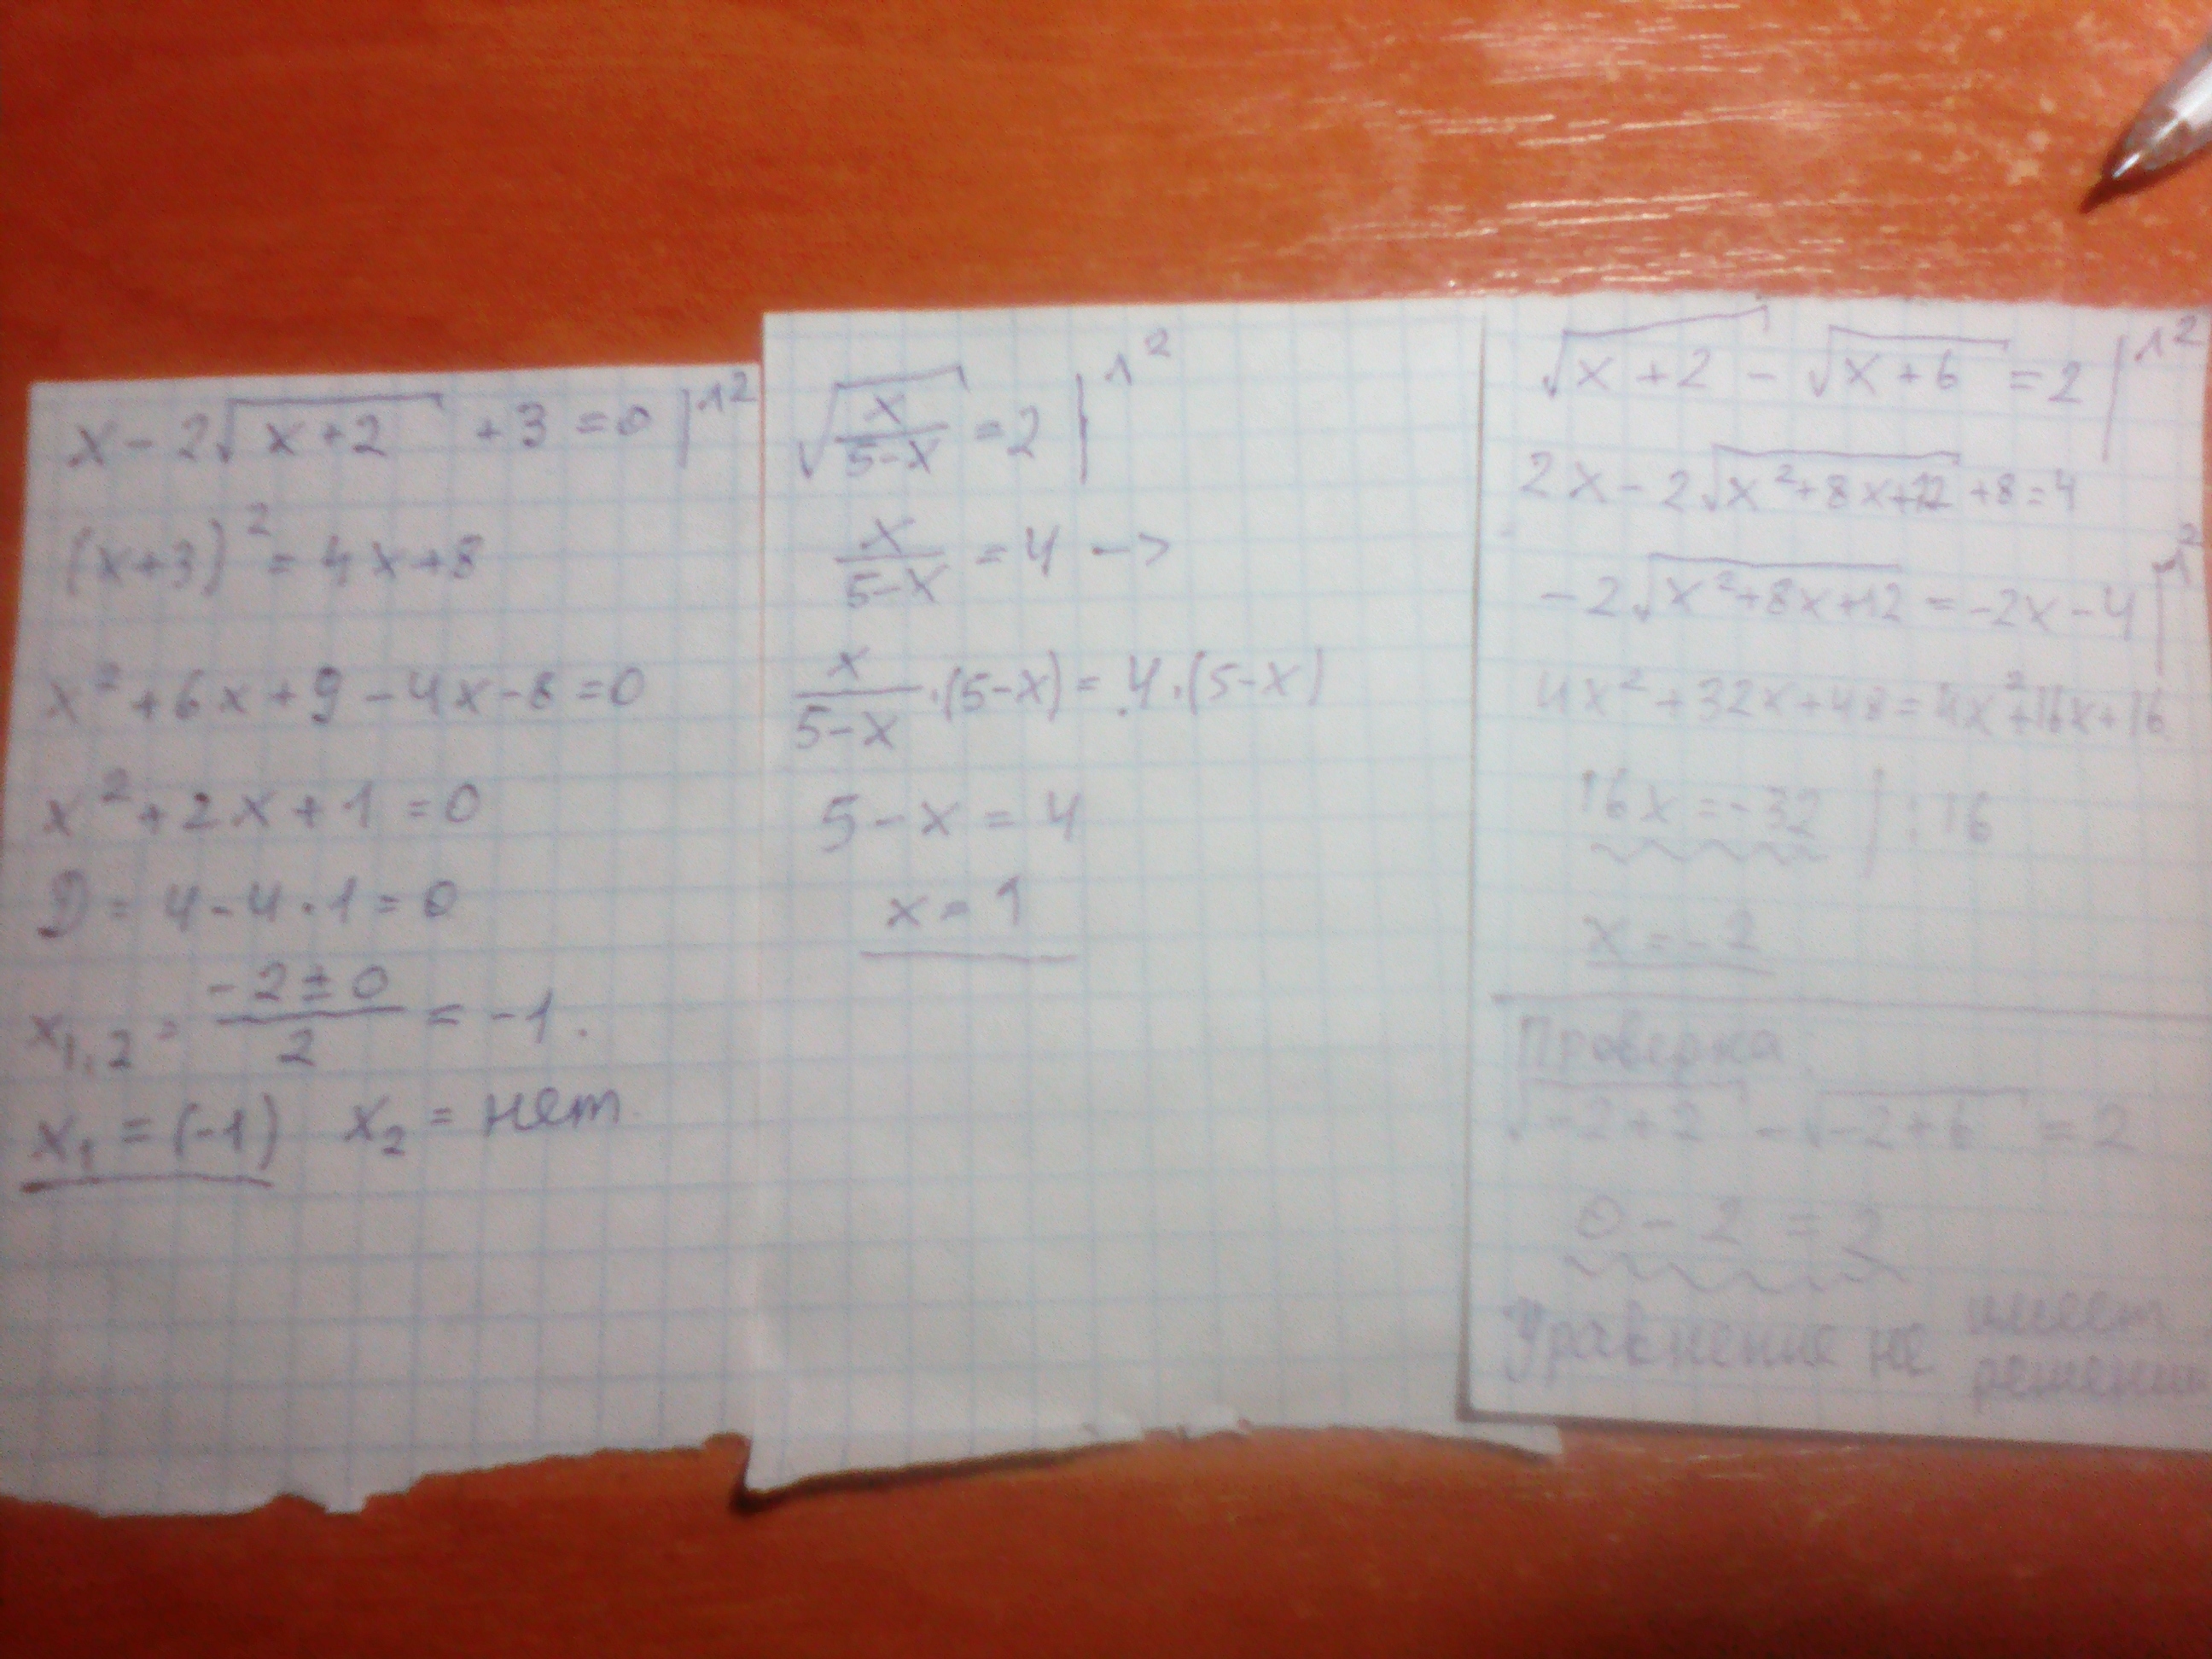 x - 2√(x+2) + 3 = 0 |^2
(x+3)^2 = 4x+8
x^2 + 6x + 9 - 4x - 8 = 0
x^2 + 2x + 1 = 0
D = 4 - 4·1 = 0
x1,2 = (-2 ± 0)/2 = -1.
x1 = (-1) x2 = нет.
√(x/(5-x)) = 2 |^2
x/(5-x) = 4 ->
x/(5-x) · (5-x) = 4 · (5-x)
5 - x = 4
x = 1
√(x+2) - √(x+6) = 2 |^2
2x - 2√(x^2+8x+12) + 8 = 4
-2√(x^2+8x+12) = -2x - 4 |^2
4x^2 + 32x + 48 = 4x^2 + 16x + 16
16x = -32 | : 16
x = -2
Проверка
√(-2+2) - √(-2+6) = 2
0 - 2 = 2
Уравнение не имеет
решения